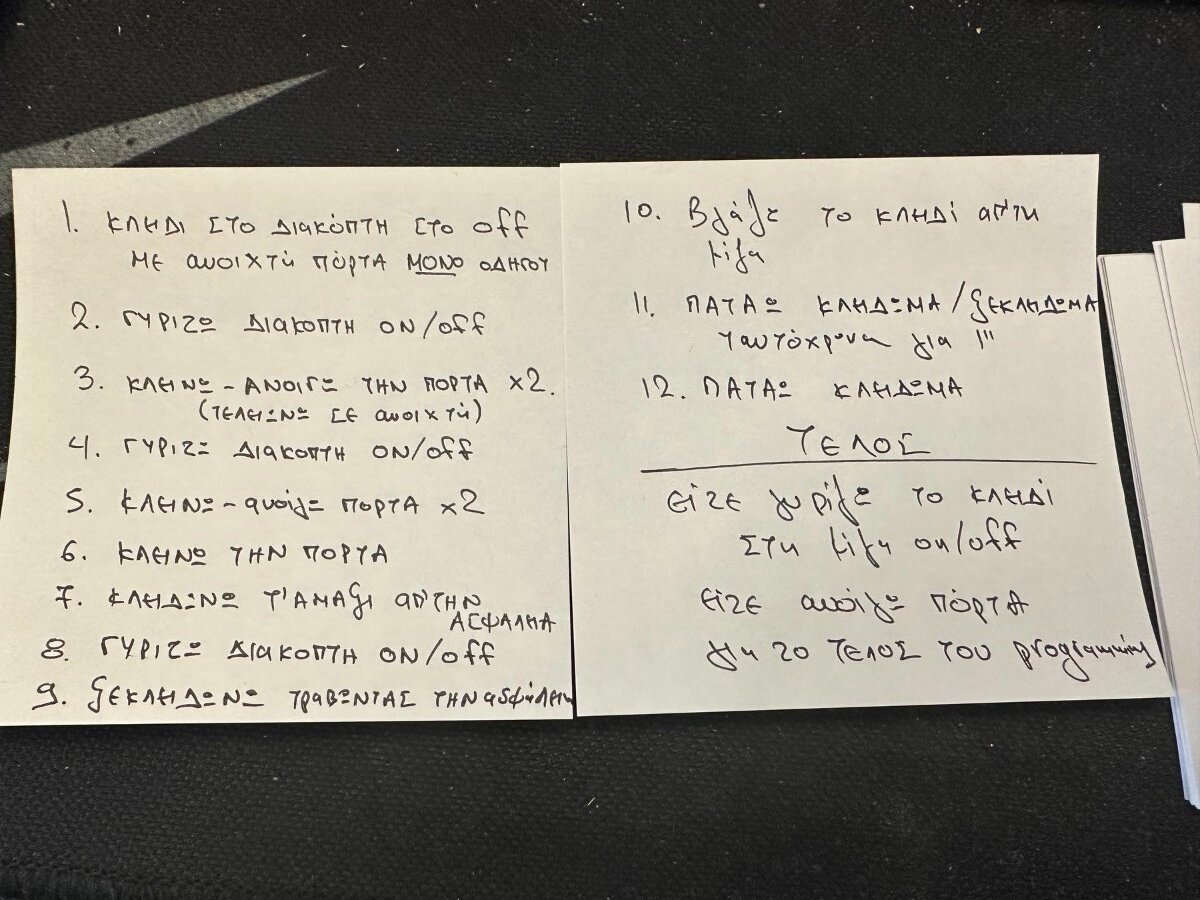 1. ΚΛΗΔΙ ΣΤΟ ΔΙΑΚΌΠΤΗ ΣΤΟ off
ΜΕ ανοιχτή ΠΌΡΤΑ ΜΟΝΟ ΟΔΗΓΟΥ
2. ΓΥΡΙΖΩ ΔΙΑΚΟΠΤΗ ON/off
3. ΚΛΕΙΝΩ - ΑΝΟΙΓΩ ΤΗΝ ΠΟΡΤΑ x2.
(ΤΕΛΕΙΩΝΩ ΣΕ ανοιχτή)
4. ΓΥΡΙΖΩ ΔΙΑΚΟΠΤΗ ON/off
5. ΚΛΕΙΝΩ - ανοίγω ΠΟΡΤΑ x2
6. ΚΛΕΙΝΩ ΤΗΝ ΠΟΡΤΑ
7. ΚΛΕΙΔΩΝΩ Τ'ΑΜΑξΙ ΑΠ'ΤΗΝ
ΑΣΦΑΛΕΙΑ
8. ΓΥΡΙΖΩ ΔΙΑΚΟΠΤΗ ON/off
9. ξΕΚΛΕΙΔΩΝΩ ΤραΒΩΝΤΑΣ ΤΗΝ ασφάλεια
10. Βγάζω το ΚΛΗΔί απ'τη
μίζα
11. ΠΑΤΑΩ ΚΛΗΔΩΜΑ/ξΕΚΛΗΔΩΜΑ
ταυτόχρονα για 1"
12. ΠΑΤΑΩ ΚΛΕΙΔΩΜΑ
ΤΕΛΟΣ
είτε γυρίζω το ΚΛΗΔί
Στη μίζα on/off
είτε ανοίγω ΠόρτΑ
για το ΤΕΛΟΣ του programming